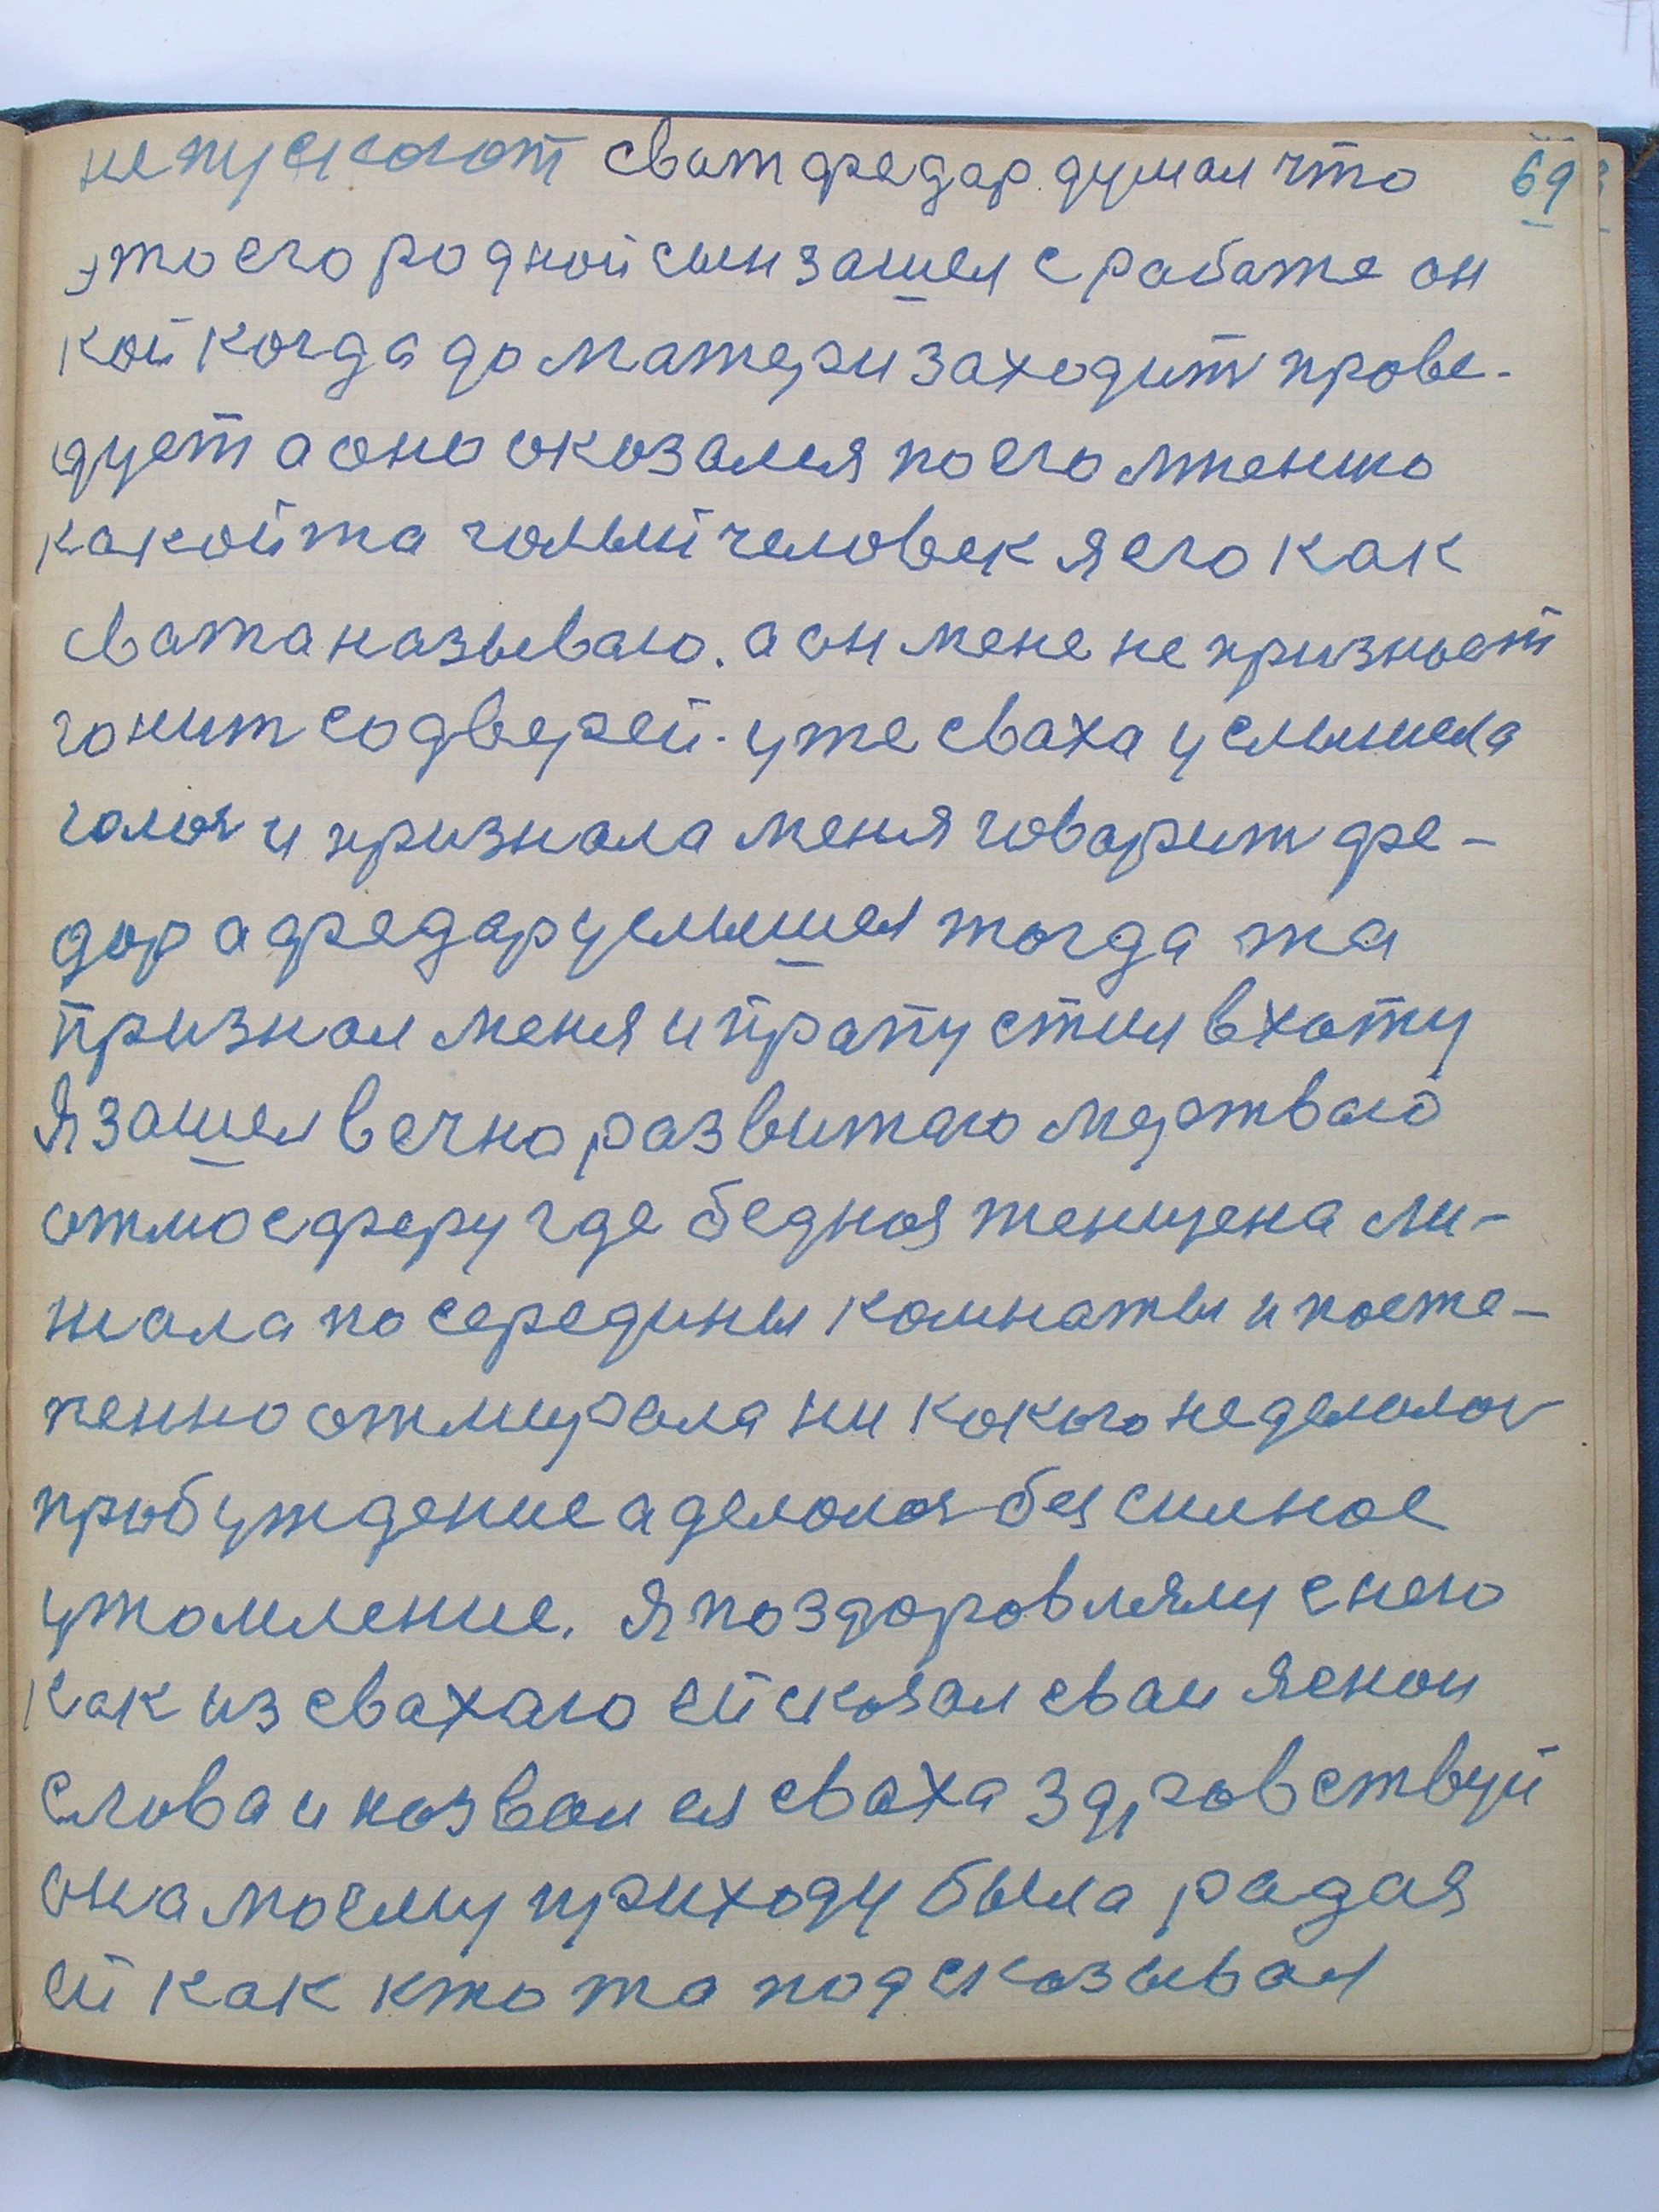 не пускают сват федар думал что 69
это его родной сын зашел с работе он
кой когда до матери заходит прове-
дует а оно оказался по его мнению
какой та голый человек я его как
свата называю. а он мене не признает
гонит с дверей. уже сваха услышела
голос и признала меня говарит фе-
дор а федар услышел тогда та
признал меня и прапустил в хату
Я зашел вечно развитаю мертваю
атмосферу где бедная женщена ли-
жала по середины комнаты и посте-
пенно отмирала ни какого не делалос
прабуждение а делолося безсилное
утомление. Я поздоровлялу с нею
как из свахаю ей сказал сваи яснои
слова и назвал ея сваха здровствуй
она моему приходу была радая
ей как кто та подсказывал